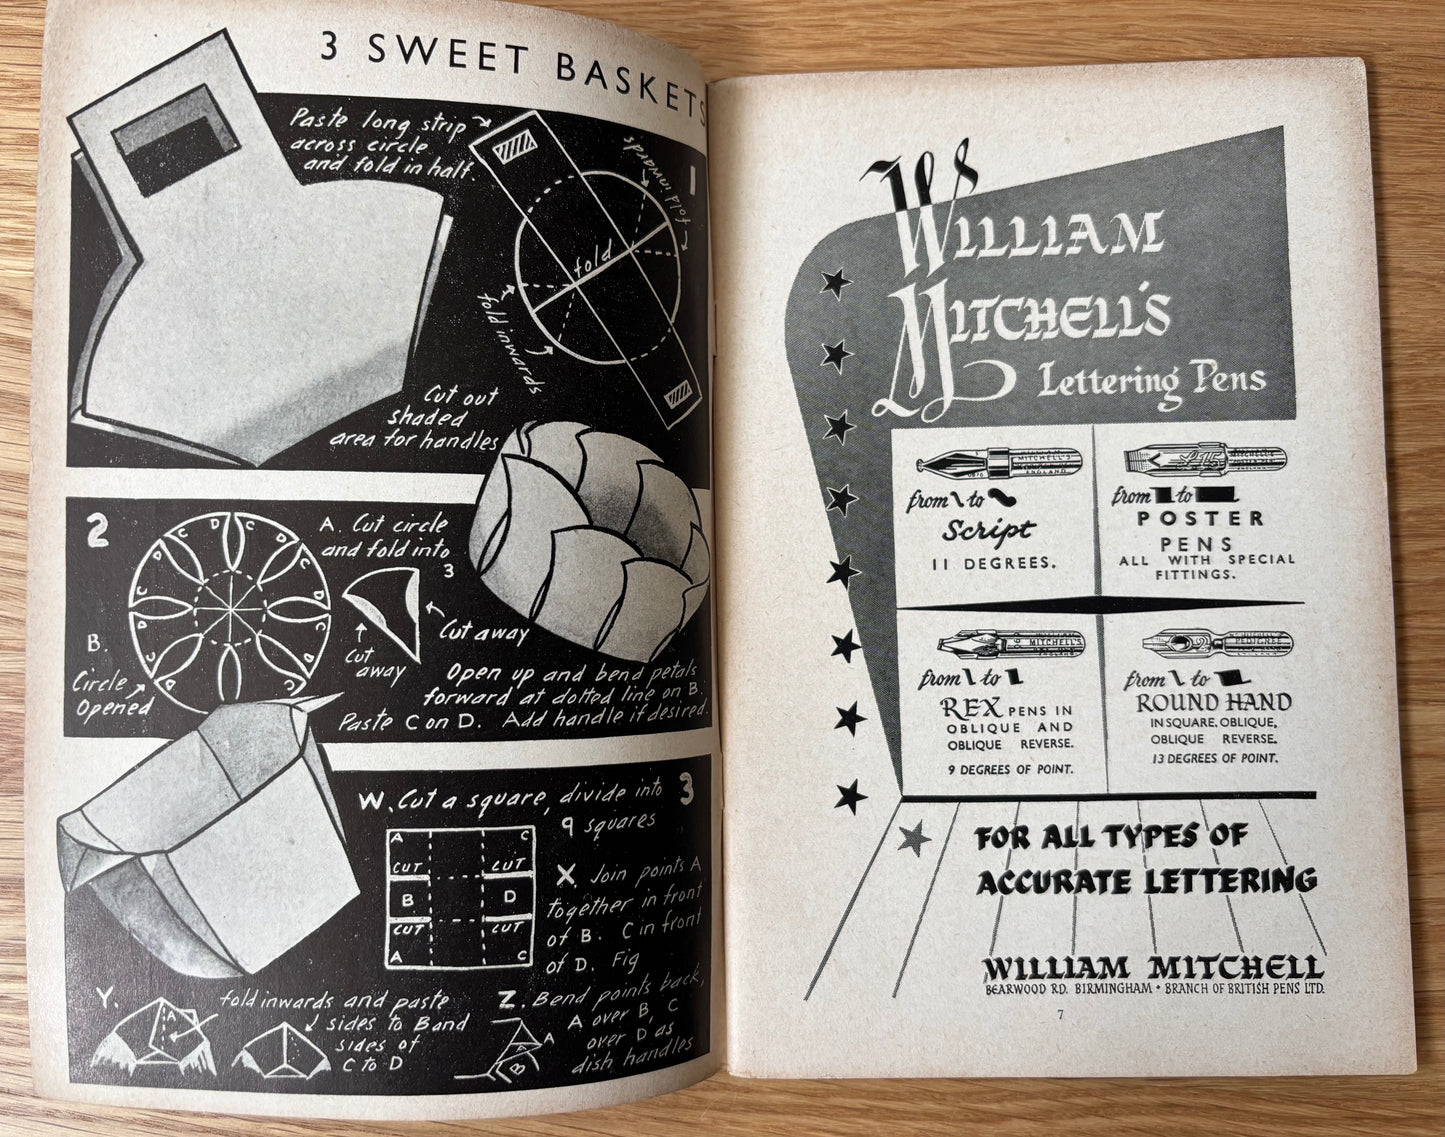 3 SWEET BASKETS
Paste long strip
across circle
and fold in half.
1
fold inwards
fold inwards
fold
fold inwards
Cut out
shaded
area for handles
2
A. Cut circle
and fold into
3
D C
C D
D C
C D
D C
C D
B.
Circle
Opened
Cut away
Cut
away
Open up and bend petals
forward at dotted line on B.
Paste C on D. Add handle if desired.
W. Cut a square, divide into
9 squares
3
A C
CUT CUT
B D
CUT CUT
A C
X. Join points A
together in front
of B. C in front
of D. Fig
Y.
A
fold inwards and paste
sides to B and
sides of
C to D
Z. Bend points back,
A over B, C
over D as
dish handles
A
A
B
WILLIAM
MITCHELL'S
Lettering Pens
WILLIAM
MITCHELL'S
ENGLAND
from to
Script
11 DEGREES.
from to
POSTER
PENS
ALL WITH SPECIAL
FITTINGS.
WILLIAM
MITCHELL'S
from to
REX PENS IN
OBLIQUE AND
OBLIQUE REVERSE.
9 DEGREES OF POINT.
MITCHELL'S
PEDIGREE
from to
ROUND HAND
IN SQUARE, OBLIQUE,
OBLIQUE REVERSE.
13 DEGREES OF POINT.
FOR ALL TYPES OF
ACCURATE LETTERING
WILLIAM MITCHELL
BEARWOOD RD. BIRMINGHAM • BRANCH OF BRITISH PENS LTD.
7